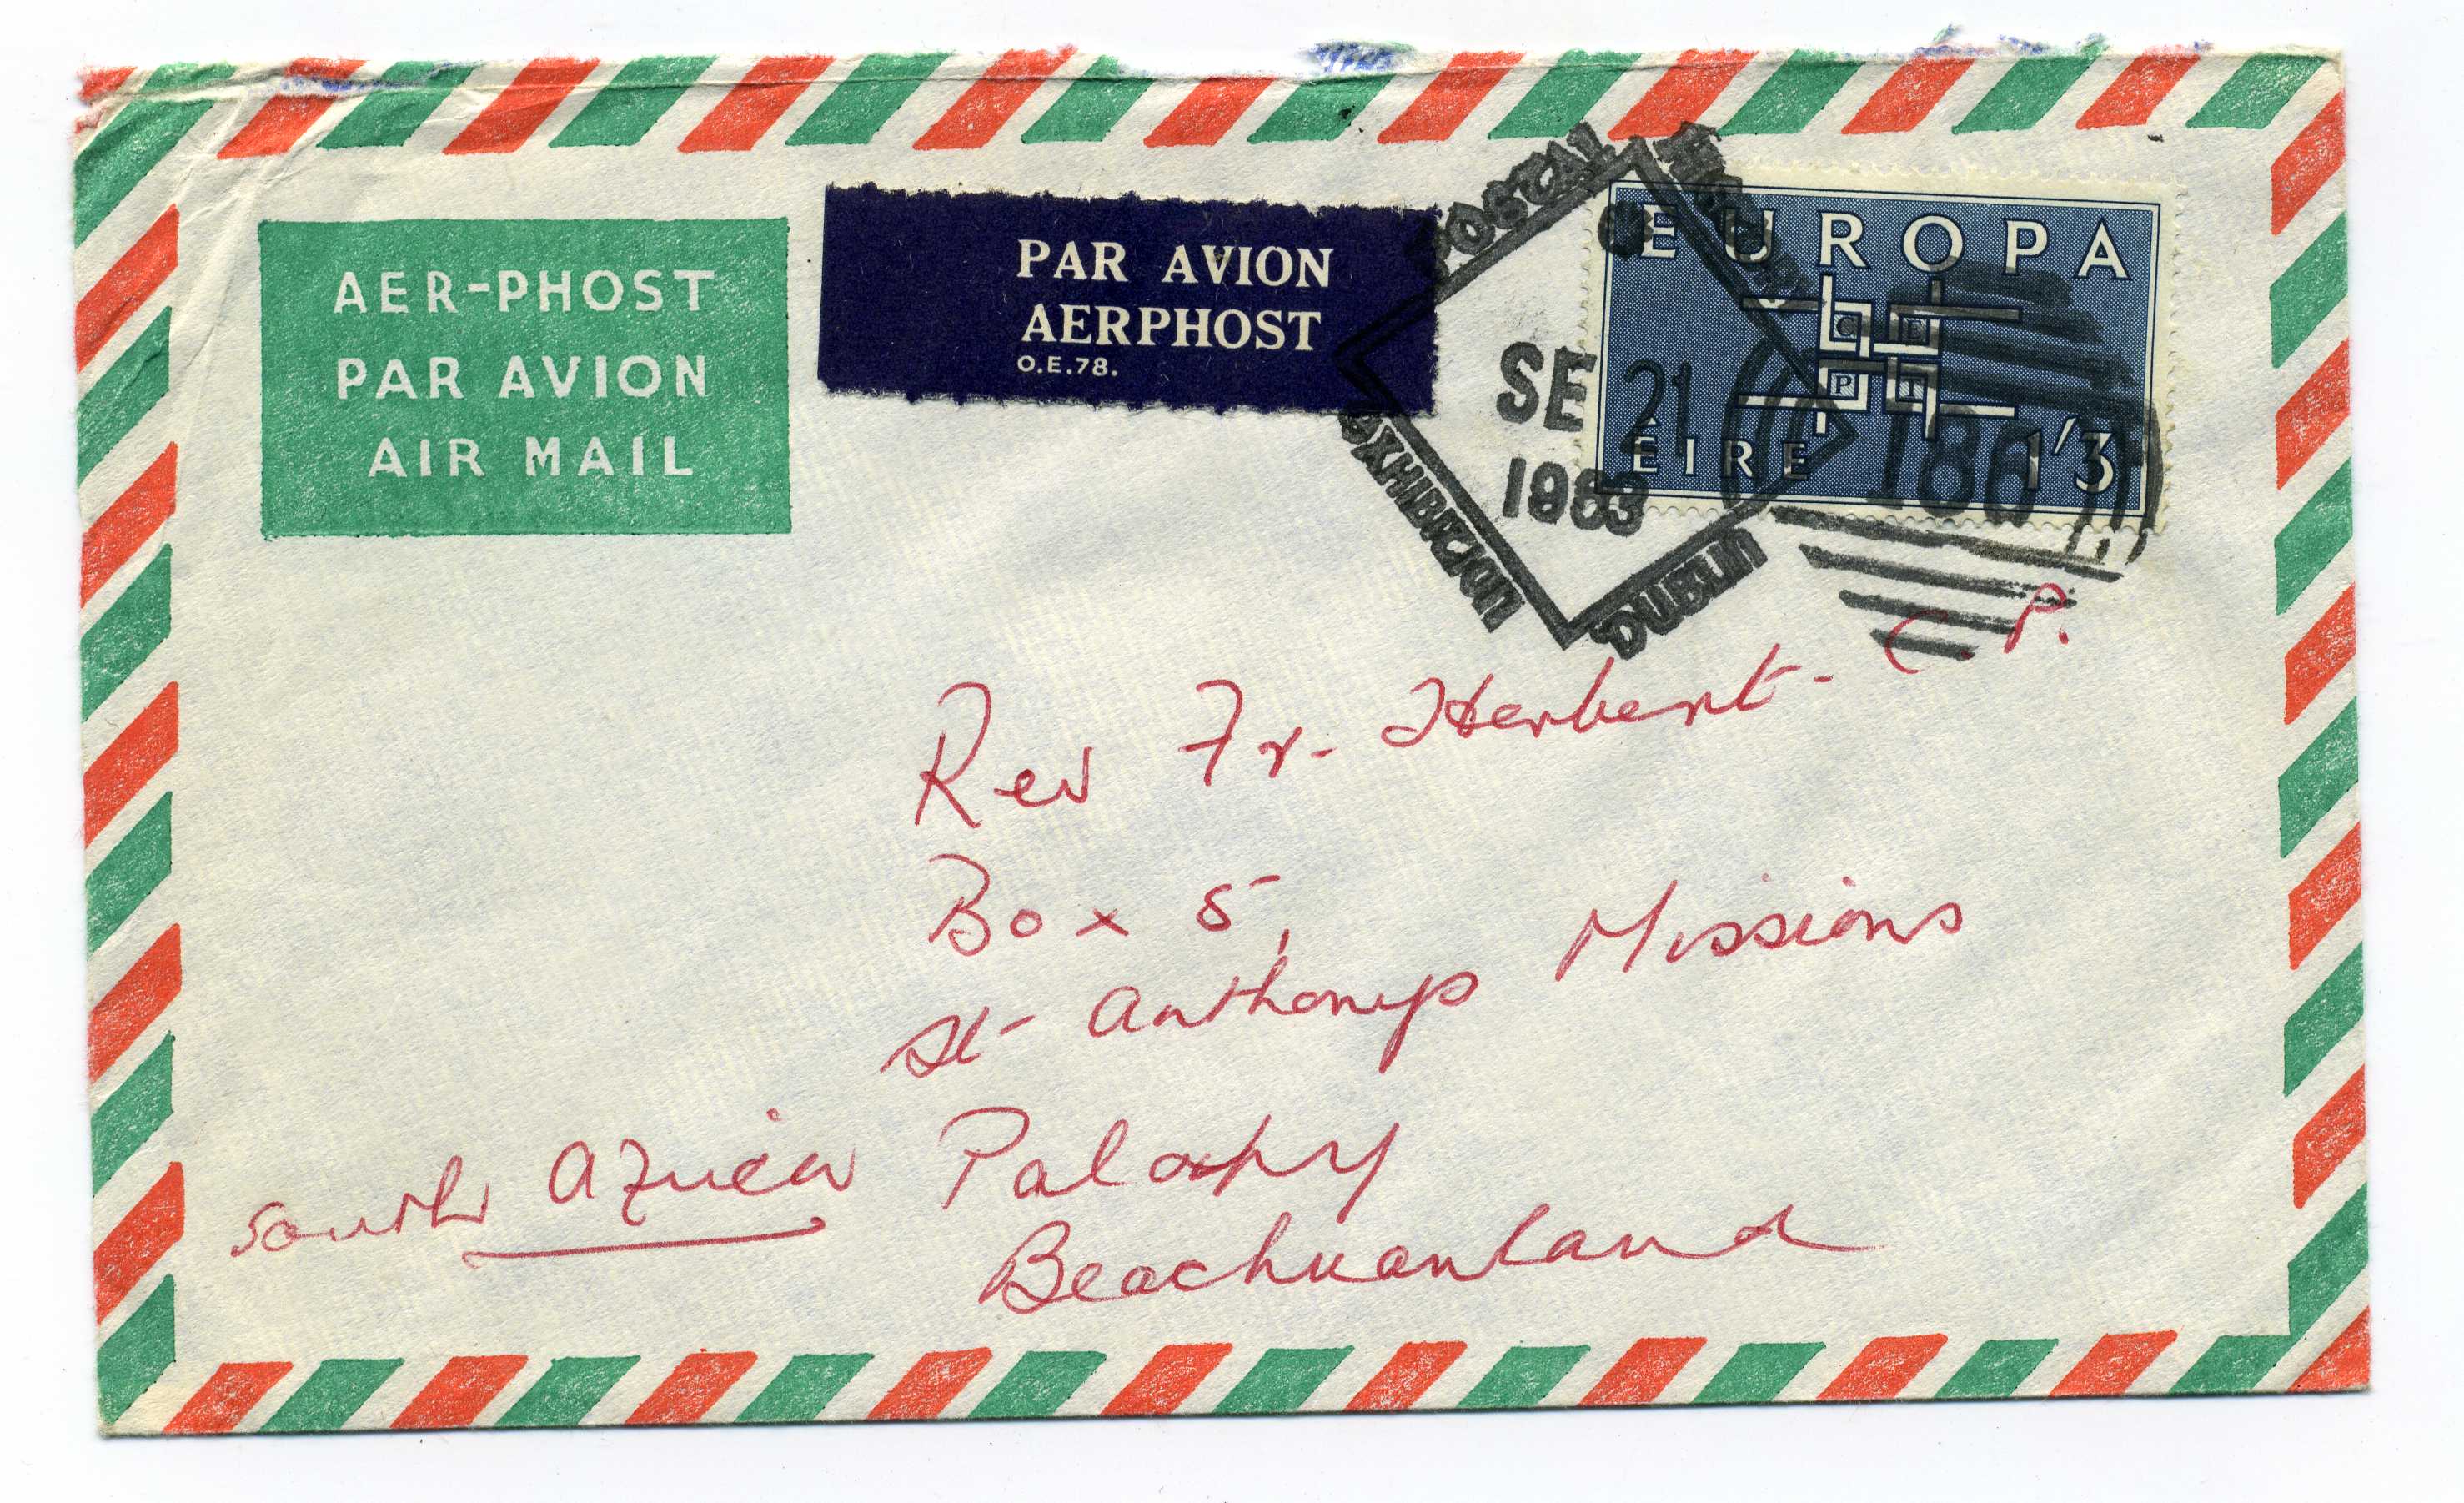 AER-PHOST
PAR AVION
AIR MAIL
PAR AVION
AERPHOST
O.E.78.
POSTAL
EXHIBITION
DUBLIN
SE 21
1963
EUROPA
C E
P T
ÉIRE 1'3
186
Rev Fr. Herbert - C.P.
Box 5,
St Anthonys Missions
Palaphy
Beachuanland
South Africa